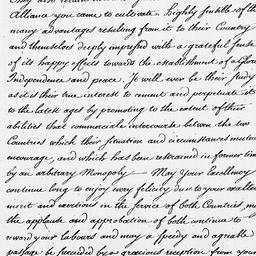 Alliance you came to cultivate. Highly sensible of the
many advantages resulting from it to their Country
and themselves deeply impressed with a grateful sense
of its happy effects towards the establishment of a Glorious
Independence and peace. It will ever be their study
as it is their true interest to cement and perpetuate it
to the latest ages by promoting to the extent of their
abilities that commercial intercourse between the two
Countries which their situation and circumstances mutually
encourage, and which has been restrained in former times
by an arbitrary Monopoly — May your Excellency
continue long to enjoy every felicity due to your exalted
merit and exertions in the service of both Countries, may
the applause and approbation of both continue to
reward your labours and may a speedy and agreeable
passage be succeeded by a gracious reception from your